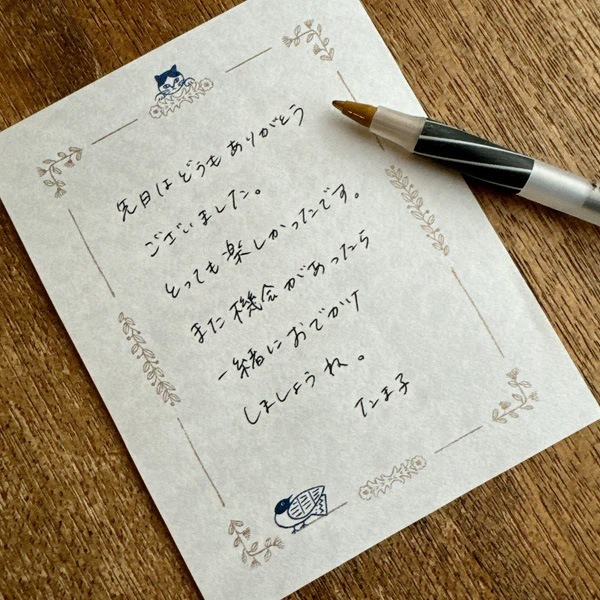 先日はどうもありがとう
ございました。
とっても楽しかったです。
また機念があったら
一緒におでかけ
しましょうね。
たま子